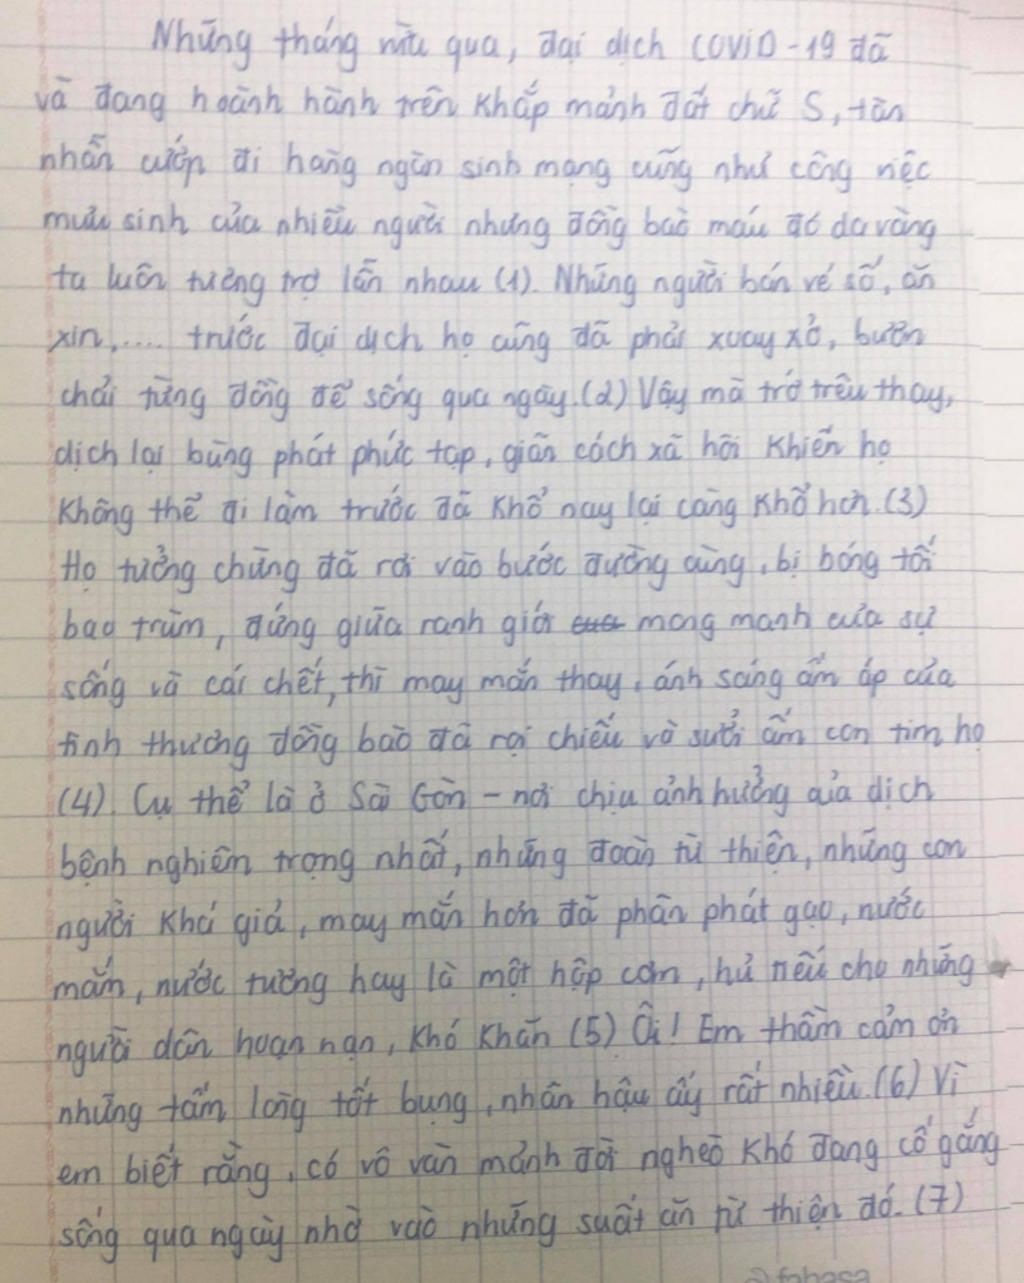 Những tháng vừa qua, đại dịch COVID-19 đã
và đang hoành hành trên khắp mảnh đất chữ S, tàn
nhẫn cướp đi hàng ngàn sinh mạng cũng như công việc
mưu sinh của nhiều người nhưng đồng bào máu đỏ da vàng
ta luôn tương trợ lẫn nhau (1). Những người bán vé số, ăn
xin,.... trước đại dịch họ cũng đã phải xoay xở, buôn
chải từng đồng để sống qua ngày.(2) Vậy mà trớ trêu thay,
dịch lại bùng phát phức tạp, giãn cách xã hội khiến họ
không thể đi làm trước đã khổ nay lại càng khổ hơn.(3)
Họ tưởng chừng đã rơi vào bước đường cùng, bị bóng tối
bao trùm, đứng giữa ranh giới mong manh của sự
sống và cái chết, thì may mắn thay, ánh sáng ấm áp của
tình thương đồng bào đã rọi chiếu và sưởi ấm con tim họ
(4). Cụ thể là ở Sài Gòn - nơi chịu ảnh hưởng của dịch
bệnh nghiêm trọng nhất, những đoàn từ thiện, những con
người khá giả, may mắn hơn đã phân phát gạo, nước
mắm, nước tương hay là một hộp cơm, hủ tiếu cho những
người dân hoạn nạn, khó khăn (5) Ôi! Em thầm cảm ơn
những tấm lòng tốt bụng, nhân hậu ấy rất nhiều.(6) Vì
em biết rằng, có vô vàn mảnh đời nghèo khó đang cố gắng
sống qua ngày nhờ vào những suất ăn từ thiện đó.(7)
fahasa